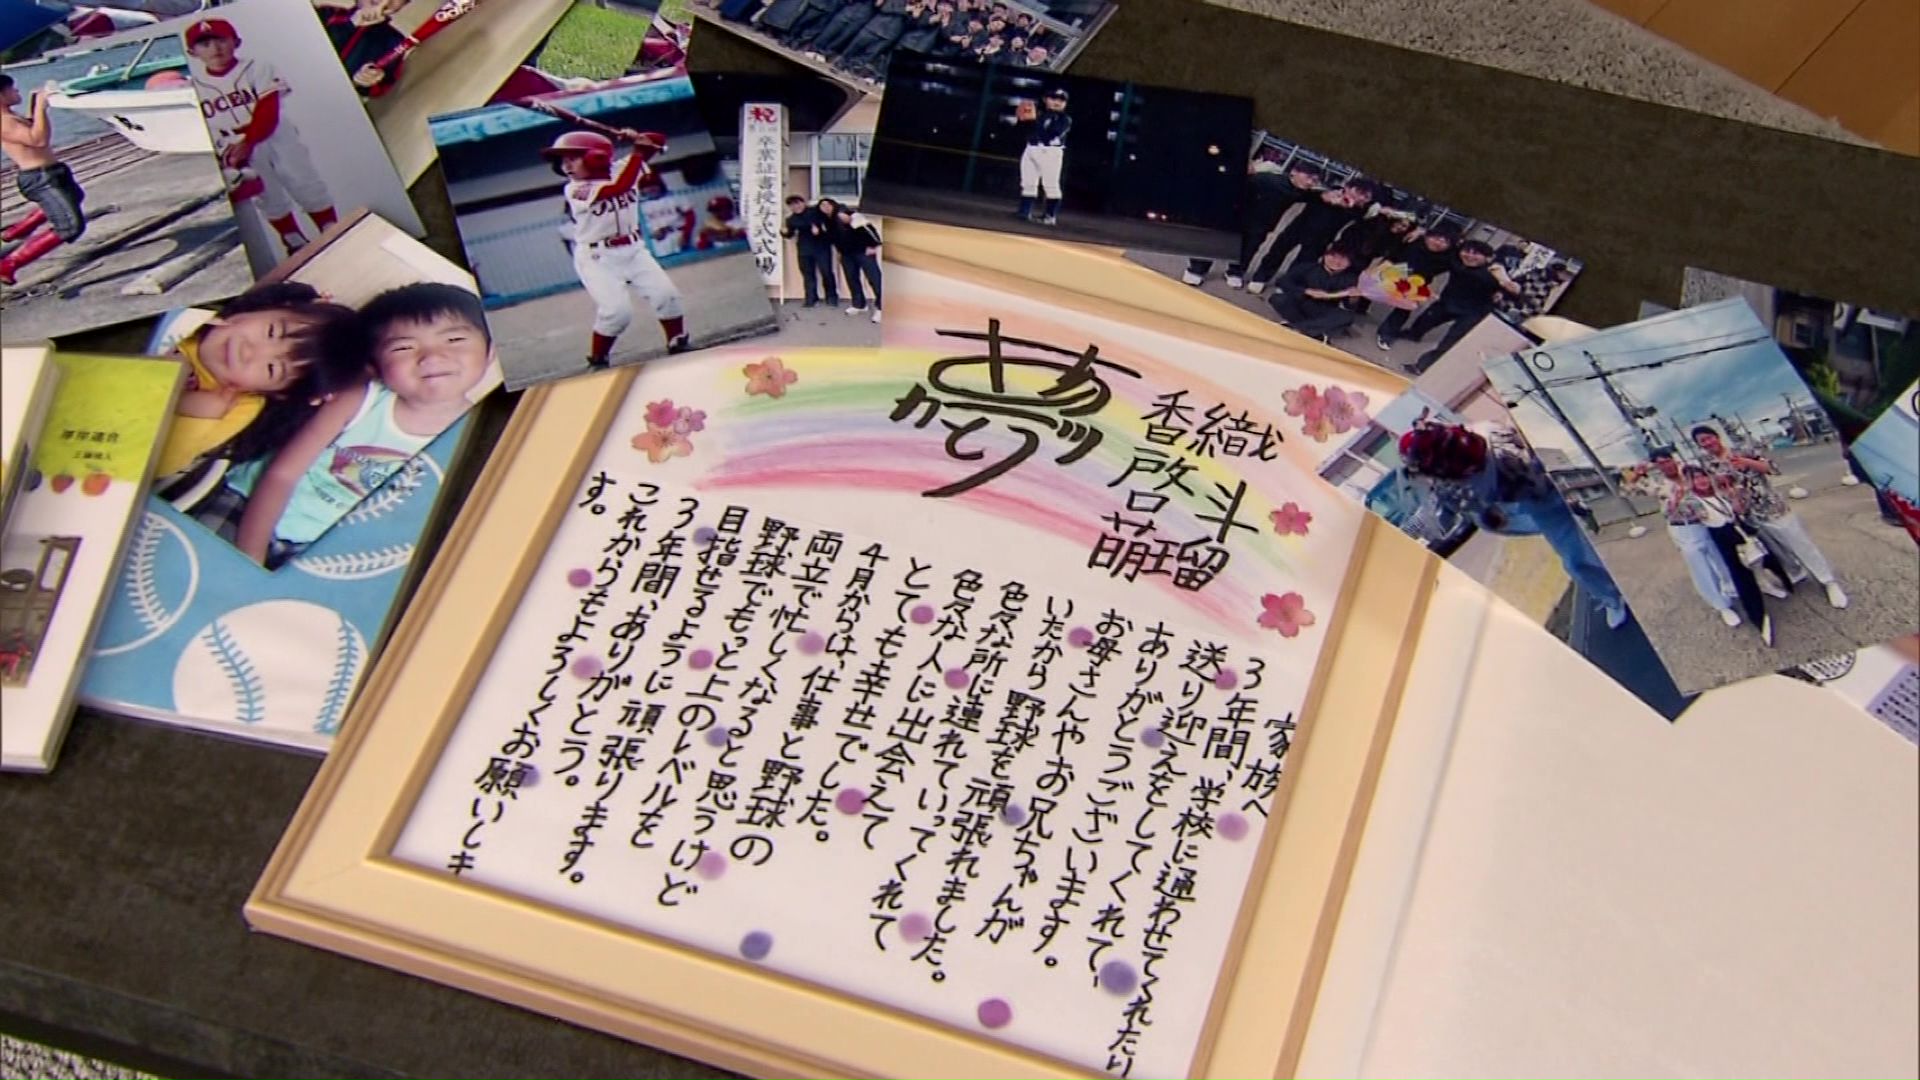 香織
啓斗
萌瑠
家族へ
3年間、学校に通わせてくれたり
送り迎えをしてくれて、
ありがとうございます。
お母さんやお兄ちゃんが
いたから野球を頑張れました。
色々な所に連れていってくれて
色々な人に出会えて
とても幸せでした。
4月からは、仕事と野球の
両立で忙しくなると思うけど
野球でもっと上のレベルを
目指せるように頑張ります。
3年間、ありがとう。
これからもよろしくお願いしま
す。
祝
卒業証書授与式式場
OCEAN